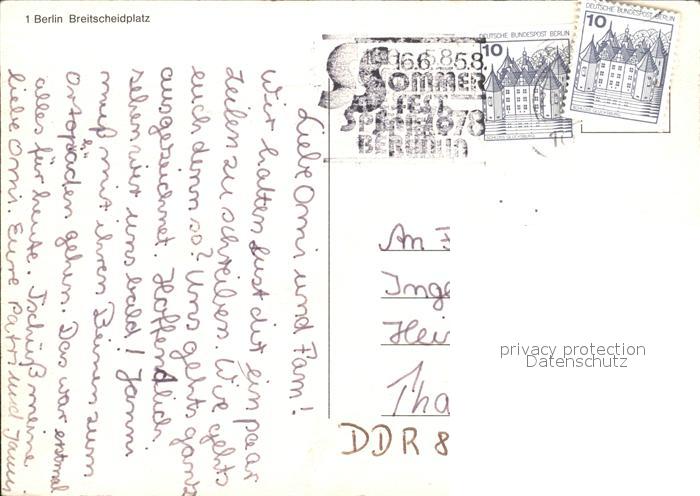 1 Berlin Breitscheidplatz
DEUTSCHE BUNDESPOST BERLIN
10
DEUTSCHE BUNDESPOST BERLIN
10
SCHLOSS GLÜCKSBURG
16.6. 5.8.
SOMMER
FEST
SPIELE 78
BERLIN
Liebe Omi und Fam!
Wir halten Lust dir ein paar
Zeilen zu schreiben. Wie gehts
euch denn so? Uns gehts ganz
ausgezeichnet. Hoffendlich
sehen wir uns bald! Janni
muß mit ihren Beinen zum
Ortopäden gehen. Das war erstmal
alles für heute. Tschüß meine
liebe Omi. Eure Patti und Janni
An F
Inge
Hei
Tha
DDR 8
privacy protection
Datenschutz